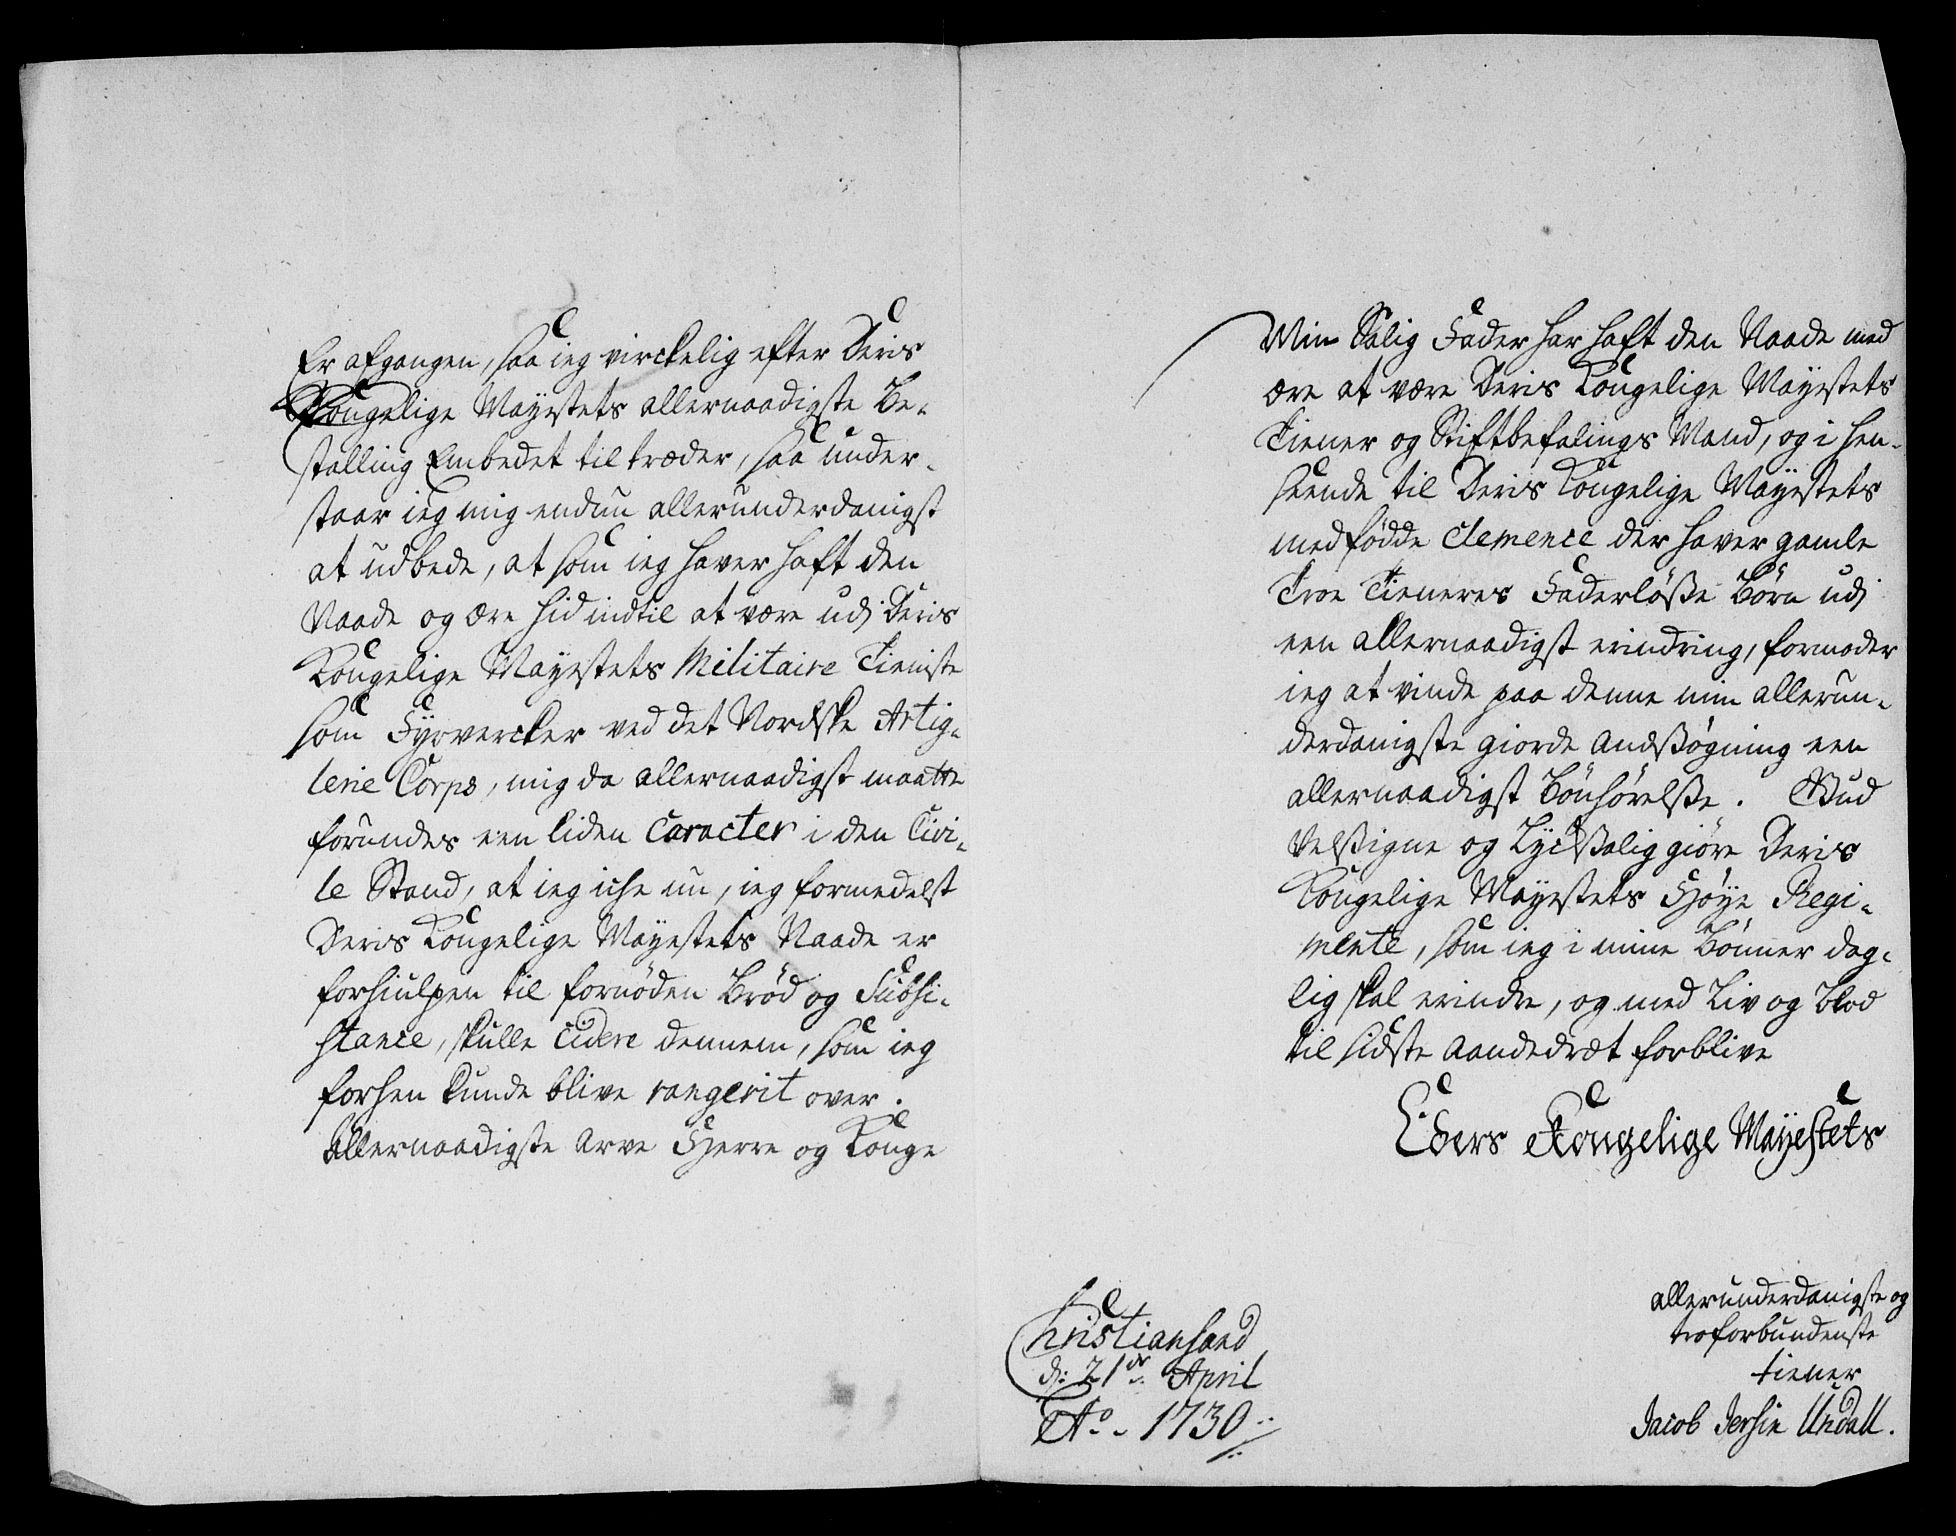 Er afgangen, saa ieg virckelig efter Deris
Kongelige Mayestets allernaadigste Be-
stalling Embedet til træder, saa under-
staar ieg mig endnu allerunderdanigst
at udbede, at som ieg haver haft den
Naade og ære hid indtil at være udj Deris
Kongelige Mayestets Militaire Tieniste
som Fyrvercker ved det Nordske Artig-
lerie Corps, mig da allernaadigst maatte
forundes een liden Caracter i den Civi-
le Stand, at ieg iche nu, ieg formedelst
Deris Kongelige Mayestets Naade er
forhiulpen til fornøden Brød og Subsi-
stance, skulle Cidere dennem, som ieg
forhen kunde blive rangerit over.
Allernaadigste Arve Herre og Konge
Min Salig Fader har haft den Naade med
ære at være Deris Kongelige Mayestets
Tiener og Stiftbefalings Mand, og i hen-
seende til Deris Kongelige Mayestets
medfødde Clemence der haver gamle
Troe Tieneres Faderløsse Børn udj
een allernaadigst erindring, formoder
ieg at vinde paa denne min allerun-
derdanigste giorde Andssøgning een
allernaadigst Bønhørelsse. Gud
Velssigne og Lycksalig giøre Deris
Kongelige Mayestets Høye Regi-
mente, som ieg i mine Bønner dag-
lig skal erindre, og med Liv og blod
til sidste Aandedræt forblive
Eders Kongelige Mayestets
Christiansand
d: 21de April
Ao. 1730
allerunderdanigste og
troforbundenste
tiener
Jacob Jersin Undall.